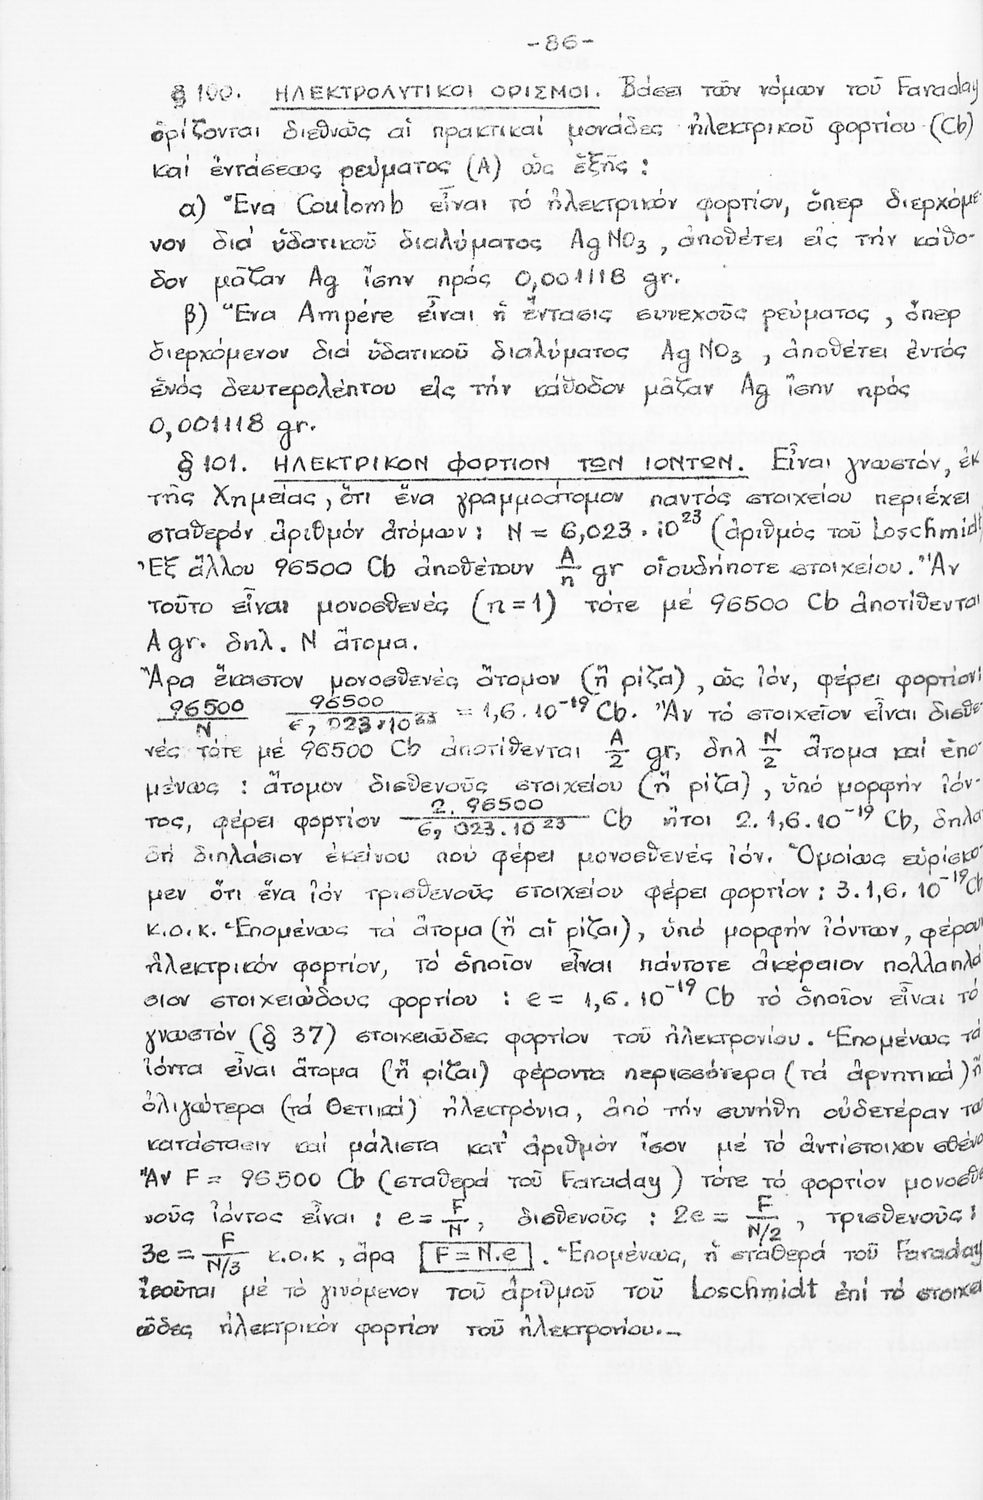 -86-
§ 100. ΗΛΕΚΤΡΟΛΥΤΙΚΟΙ ΟΡΙΣΜΟΙ. Βάσει τῶν νόμων τοῦ Faraday
ὁρίζονται διεθνῶς αἱ πρακτικαί μονάδες ἠλεκτρικοῦ φορτίου (Cb)
καί ἐντάσεως ρεύματος (A) ὡς ἑξῆς :
α) Ἕνα Coulomb εἶναι τό ἠλεκτρικόν φορτίον, ὅπερ διερχόμε-
νον διά ὑδατικοῦ διαλύματος AgNO3, ἀποθέτει εἰς τήν κάθο-
δον μᾶζαν Ag ἴσην πρός 0,001118 gr.
β) Ἕνα Ampére εἶναι ἡ ἔντασις συνεχοῦς ρεύματος, ὅπερ
διερχόμενον διά ὑδατικοῦ διαλύματος AgNO3, ἀποθέτει ἐντός
ἑνός δευτερολέπτου εἰς τήν κάθοδον μᾶζαν Ag ἴσην πρός
0,001118 gr.
§ 101. ΗΛΕΚΤΡΙΚΟΝ ΦΟΡΤΙΟΝ ΤΩΝ ΙΟΝΤΩΝ. Εἶναι γνωστόν, ἐκ
τῆς Χημείας, ὅτι ἕνα γραμμοάτομον παντός στοιχείου περιέχει
σταθερόν ἀριθμόν ἀτόμων: N = 6,023 . 10^23 (ἀριθμός τοῦ Loschmidt
Ἐξ ἄλλου 96500 Cb ἀποθέτουν A/n gr οἱουδήποτε στοιχείου. Ἄν
τοῦτο εἶναι μονοσθενές (n=1) τότε μέ 96500 Cb ἀποτίθενται
A gr. δηλ. N ἄτομα.
Ἄρα ἕκαστον μονοσθενές ἄτομον (ἤ ρίζα), ὡς ἰόν, φέρει φορτίον:
96500/N 96500/6,023.10^23 = 1,6.10^-19 Cb. Ἄν τό στοιχεῖον εἶναι δισθε-
νές τότε μέ 96500 Cb ἀποτίθενται A/2 gr, δηλ N/2 ἄτομα καί ἑπο-
μένως : ἄτομον δισθενοῦς στοιχείου (ἤ ρίζα), ὑπό μορφήν ἰόν-
τος, φέρει φορτίον 2.96500/6,023.10^23 Cb ἤτοι 2.1,6.10^-19 Cb, δηλα
δή διπλάσιον ἐκείνου πού φέρει μονοσθενές ἰόν. Ὁμοίως εὑρίσκο-
μεν ὅτι ἕνα ἰόν τρισθενοῦς στοιχείου φέρει φορτίον : 3.1,6.10^-19 Cb
κ.ο.κ. Ἑπομένως τά ἄτομα (ἤ αἱ ρίζαι), ὑπό μορφήν ἰόντων, φέρουν
ἠλεκτρικόν φορτίον, τό ὁποῖον εἶναι πάντοτε ἀκέραιον πολλαπλά
σιον στοιχειώδους φορτίου : e = 1,6.10^-19 Cb τό ὁποῖον εἶναι τό
γνωστόν (§ 37) στοιχειῶδες φορτίον τοῦ ἠλεκτρονίου. Ἑπομένως τά
ἰόντα εἶναι ἄτομα (ἤ ρίζαι) φέροντα περισσότερα (τά ἀρνητικά) ἤ
ὀλιγώτερα (τά θετικά) ἠλεκτρόνια, ἀπό τήν συνήθη οὐδετέραν των
κατάστασιν καί μάλιστα κατ' ἀριθμόν ἴσον μέ τό ἀντίστοιχον σθένο
Ἄν F = 96500 Cb (σταθερά τοῦ Faraday) τότε τό φορτίον μονοσθε
νοῦς ἰόντος εἶναι : e = F/N, δισθενοῦς : 2e = F/N/2, τρισθενοῦς:
3e = F/N/3 κ.ο.κ, ἄρα F=N.e. Ἑπομένως, ἡ σταθερά τοῦ Faraday
ἰσοῦται μέ τό γινόμενον τοῦ ἀριθμοῦ τοῦ Loschmidt ἐπί τό στοιχει
ῶδες ἠλεκτρικόν φορτίον τοῦ ἠλεκτρονίου.-